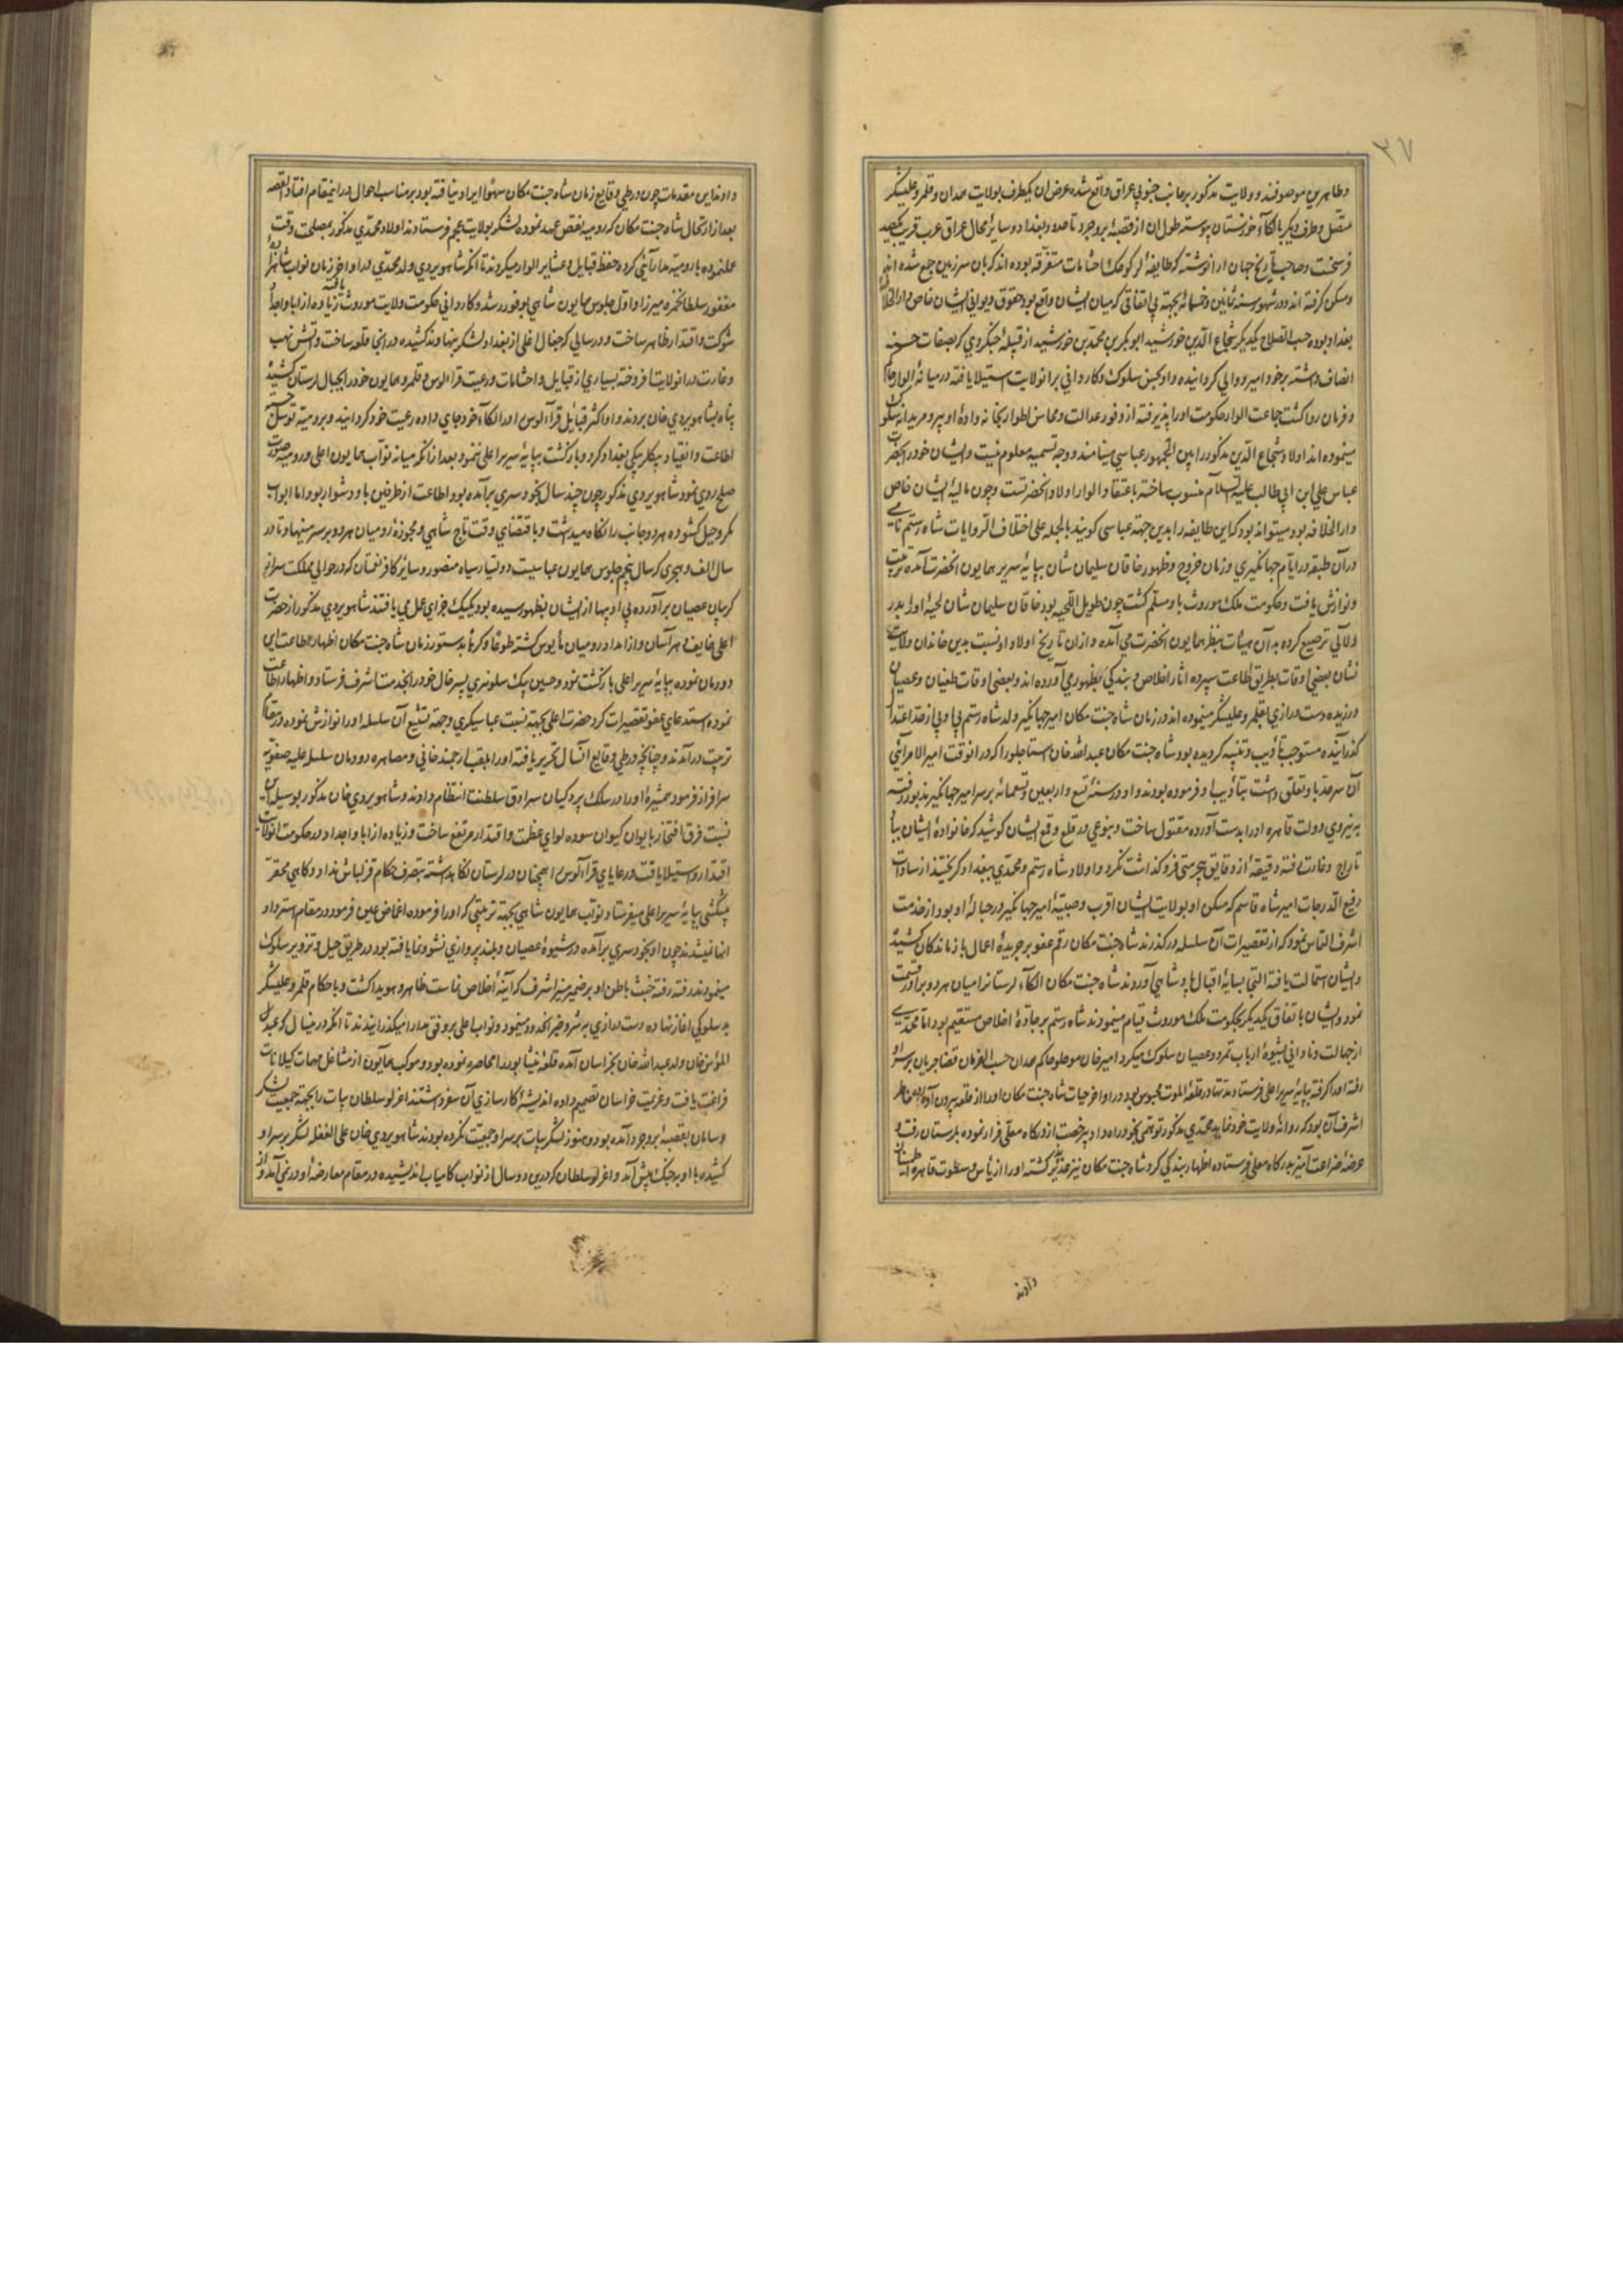 ۲۷
و طاهری موصوفند و ولایت مذکور بر جانب جنوبی عراق واقع شده عرض ان یکطرف بولایت همدان و قلمرو علیشکر
متصل و طرف دیگر بالکاء خوزستان پیوسته طول ان از قصبه بروجرد تا حدود بغداد و سایر محال عراق عرب قریب بکصد
فرسخست و صاحب تاریخ جهان ارا نوشته که طایفه لر کوچک احشامات متفرقه بوده اند که بان سرزمین جمع شده انجا
و مسکن گرفته اند و در شهور سنه ثمانین و خمسمائه بجهته بی اتفاقی که میان ایشان واقع بود حقوق دیوانی ایشان خاص دار الخلافه
بغداد بوده حسب الصلاح یکدیگر شجاع الدین خورشید ابو بکر بن محمد بن خورشید از قبیله جنگروی که بصفات حسنه
انصاف داشته بر خود امیر و والی گردانیده و او بحسن سلوک و کاردانی بر انولایت استیلا یافته در میانه الوار حاکم
و فرمان روا گشت جماعت الوار حکومت اورا پذیرفته از وفور عدالت و محاسن اطوار بخانه واده او پیر و مریدانه سلوک
مینموده اند اولاد شجاع الدین مذکور را بین الجمهور عباسی مینامند و وجه تسمیه معلوم نیست و ایشان خود را بحضرت
عباس علی ابن ابی طالب علیه السلام منسوب ساخته باعتقاد الوار اولاد انحضرتست و چون مالیه ایشان خاص
دار الخلافه بود میتواند بود که این طایفه را بدین جهته عباسی گویند بالجمله علی اختلاف الروایات شاه رستم نامی
در آن طبقه در ایام جهانگیری و زمان خروج و ظهور خاقان سلیمان شان بپایه سریر همایون انحضرت آمده تربیت
و نوازش یافت و حکومت ملک موروث باو مسلم گشت چون طویل اللحیه بود خاقان سلیمان شان لحیه اورا بدر
و لآلی ترصیع کرده به آن هیئات بنظر همایون انحضرت می آمده و ازان تاریخ اولاد او نسبت بدین خاندان ولایت
نشان بعضی اوقات بطریق اطاعت سپرده اثار اخلاص و بندگی بظهور می آورده اند و بعضی اوقات طغیان و عصیان
ورزیده دست درازی بقلمرو علیشکر مینموده اند در زمان شاه جنت مکان امیر جهانگیر ولد شاه رستم پای از حد اعتدال
گذرانیده مستوجب تأدیب و تنبیه گردیده بود شاه جنت مکان عبد الله خان استاجلو را که در انوقت امیر الامرائی
آن سرحد باو تعلق داشت بتأدیب او فرموده بودند و او در سنه تسع و اربعین و تسعمائه بر سر امیر جهانگیر مذبور رفته
به نیروی دولت قاهره اورا بدست آورده مقتول ساخت و بنوعی در قلع و قمع ایشان کوشید که خانواده ایشان بباد
تاراج و غارت رفته دقیقه از دقایق بیحرمتی فرو گذاشت نکرد و اولاد شاه رستم و محمدی ببغداد گریختند از سادات
رفیع الدرجات امیر شاه قاسم که مسکن او بولایت ایشان اقرب و صبیه امیر جهانگیر در حباله او بود از خدمت
اشرف التماس نمود که از تقصیرات آن سلسله درگذرند شاه جنت مکان رقم عفو بر جریده اعمال بازماندگان کشیده
و ایشان استمالت یافته التجا بسایه اقبال پادشاهی آوردند شاه جنت مکان الکاء لرستانرا میان هر دو برادر قسمت
نمود و ایشان باتفاق یکدیگر بحکومت ملک موروث قیام مینمودند شاه رستم بر جاده اخلاص مستقیم بود اما محمدی
از جهالت و نادانی بشیوه ارباب تمرد و عصیان سلوک میکرد امیر خان موصلو حاکم همدان حسب الفرمان قضا جریان بر سر او
رفته اورا گرفته بپایه سریر اعلی فرستاد مدتها در قلعه الموت محبوس بود در اواخر حیات شاه جنت مکان اورا از قلعه بیرون آورده
اشرف آن بود که روانه ولایت خود نماید محمدی مذکور توهمی بخود راه داده بیرخصت از درگاه معلی فرار نموده بلرستان رفت و
عرضه ضراعت آمیز بدرگاه معلی فرستاده اظهار بندگی کرد شاه جنت مکان نیز گشته اورا از یاس و سطوت قاهره
دادند
دادند این مقدمات چون در طی وقایع زمان شاه جنت مکان سهوا ایراد نیافته بود بر مناسب احوال در اینمقام افتاد القصه
بعد از ارتحال شاه جنت مکان که رومیه نقض عهد نموده لشکر بولایت عجم فرستادند اولاد محمدی مذکور بمصلحت وقت
عملنموده با رومیه مدارائی کرده حفظ قبایل و عشایر الوار میکردند تا انکه شاهویردی ولد محمدی در اواخر زمان نواب شاهزاده
مغفور سلطان حمزه میرزا و اوایل جلوس همایون شاهی بوفور رشد و کاردانی حکومت ولایت موروث یافته زیاده از ابا و اجداد
شوکت و اقتدار ظاهر ساخت و در سالی که جغال اغلی از بغداد لشکر بنهاوند کشیده در انجا قلعه ساخت و اتش نهب
و غارت در انولایت افروخته بسیاری از قبایل و احشامات و رعیت قرا الوس و قلمرو همایون خود را بجبال لرستان کشیده
پناه بشاهویردی خان بردند و او اکثر قبایل قرا الوس را در الکاء خود جای داده رعیت خود گردانید و برومیه توسل جسته
اطاعت و انقیاد بیکلربیکی بغداد کرد و بازگشت بپایه سریر اعلی ننمود بعد از انکه میانه نواب همایون اعلی و رومیه صورت
صلح روی نمود شاهویردی مذکور چون چند سال بخود سری برآمده بود اطاعت از طرفین باو دشوار بود اما ابواب
مکر و حیل گشوده هر دو جانب را نگاه میداشت و باقتضای وقت تاج شاهی و مجوزه رومیان هر دو بر سر مینهاد تا در
سال الف و هجری که سال پنجم جلوس همایون عباسیست دولتیار سیاه منصور و سایر کافر نعمتان که در حوالی مملکت سر از
گریبان عصیان برآورده بی ادبیها از ایشان بظهور رسیده بود یکیک جزای عمل می یافتند شاهویردی مذکور از حضرت
اعلی خایف و هراسان و از امداد رومیان مأیوس گشته طوعا و کرها بدستور زمان شاه جنت مکان اظهار اطاعت این
دودمان نموده بپایه سریر اعلی بازگشت نمود و حسین بیک سلوسری پسر خال خود را بخدمت اشرف فرستاد و اظهار اطاعت
نموده استدعای عفو تقصیرات کرد حضرت اعلی بجهته نسبت عباسیگری و جهته تشیع آن سلسله اورا نوازش نموده در مقام
تربیت در آمدند و چنانچه در طی وقایع انسال تحریر یافته اورا بلقب ارجمند خانی و مصاهره دودمان سلسله علیه صفویه
سرافراز فرمود همشیره اورا در سلک پردگیان سرادق سلطنت انتظام دادند و شاهویردی خان مذکور بوسیله این
نسبت فرق افتخار بایوان کیوان سوده لوای عظمت و اقتدار مرتفع ساخت و زیاده از ابا و اجداد در حکومت انولایت
اقتدار و استیلا یافت و رعایای قرا الوس را همچنان در لرستان نگاهداشته بتصرف حکام قزلباش نداد و گاهی محقر
پیشکشی بپایه سریر اعلی میفرستاد و نواب همایون شاهی بجهته تربیتی که اورا فرموده اغماض عین فرمود در مقام استرداد
انها نمیشدند چون او بخود سری برآمده در شیوه عصیان و بلند پروازی نشو و نما یافته بود در طریق حیل و تزویر سلوک
مینمود رفته رفته خبث باطن او بر ضمیر منیر اشرف که آینه اخلاص نماست ظاهر و هویدا گشت و با حکام قلمرو علیشکر
بد سلوکی اغاز نهاده دست درازی به شر و خیر انحدود مینمود و نواب اعلی بر وفق مدارا میگذرانیدند تا انکه در سال که عبد
المؤمن خان ولد عبد الله خان بخراسان آمده قلعه نیشابور را محاصره نموده بود و موکب همایون از مشاغل مهمات گیلانات
فراغت یافت و عزیمت خراسان تصمیم داده اندیشه کارسازی آن سفر داشتند اغرلو سلطان بیات را بجهته جمعیت لشکر
و سامان بقصبه بروجرد آمده بود و هنوز لشکر بیات بر سر او جمعیت نکرده بودند شاهویردی خان علی الغفله لشکر بر سر او
کشیده با او بجنگ پیش آمد و اغرلو سلطان که درین دو سال از نواب کامیاب اندیشیده در مقام معارضه او در نمی آمد